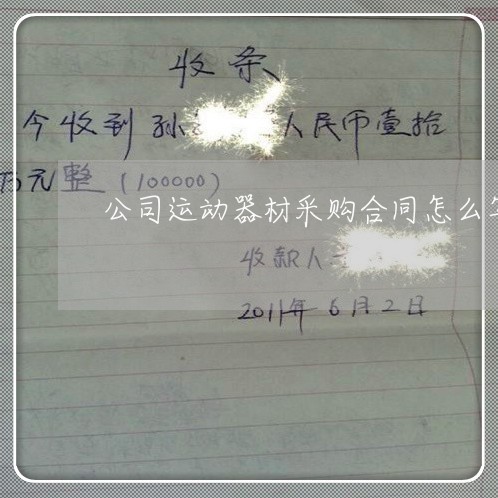 收条
今收到孙 人民币壹拾
万元整(100000)
公司运动器材采购合同怎么
收款人
2011年6月2日